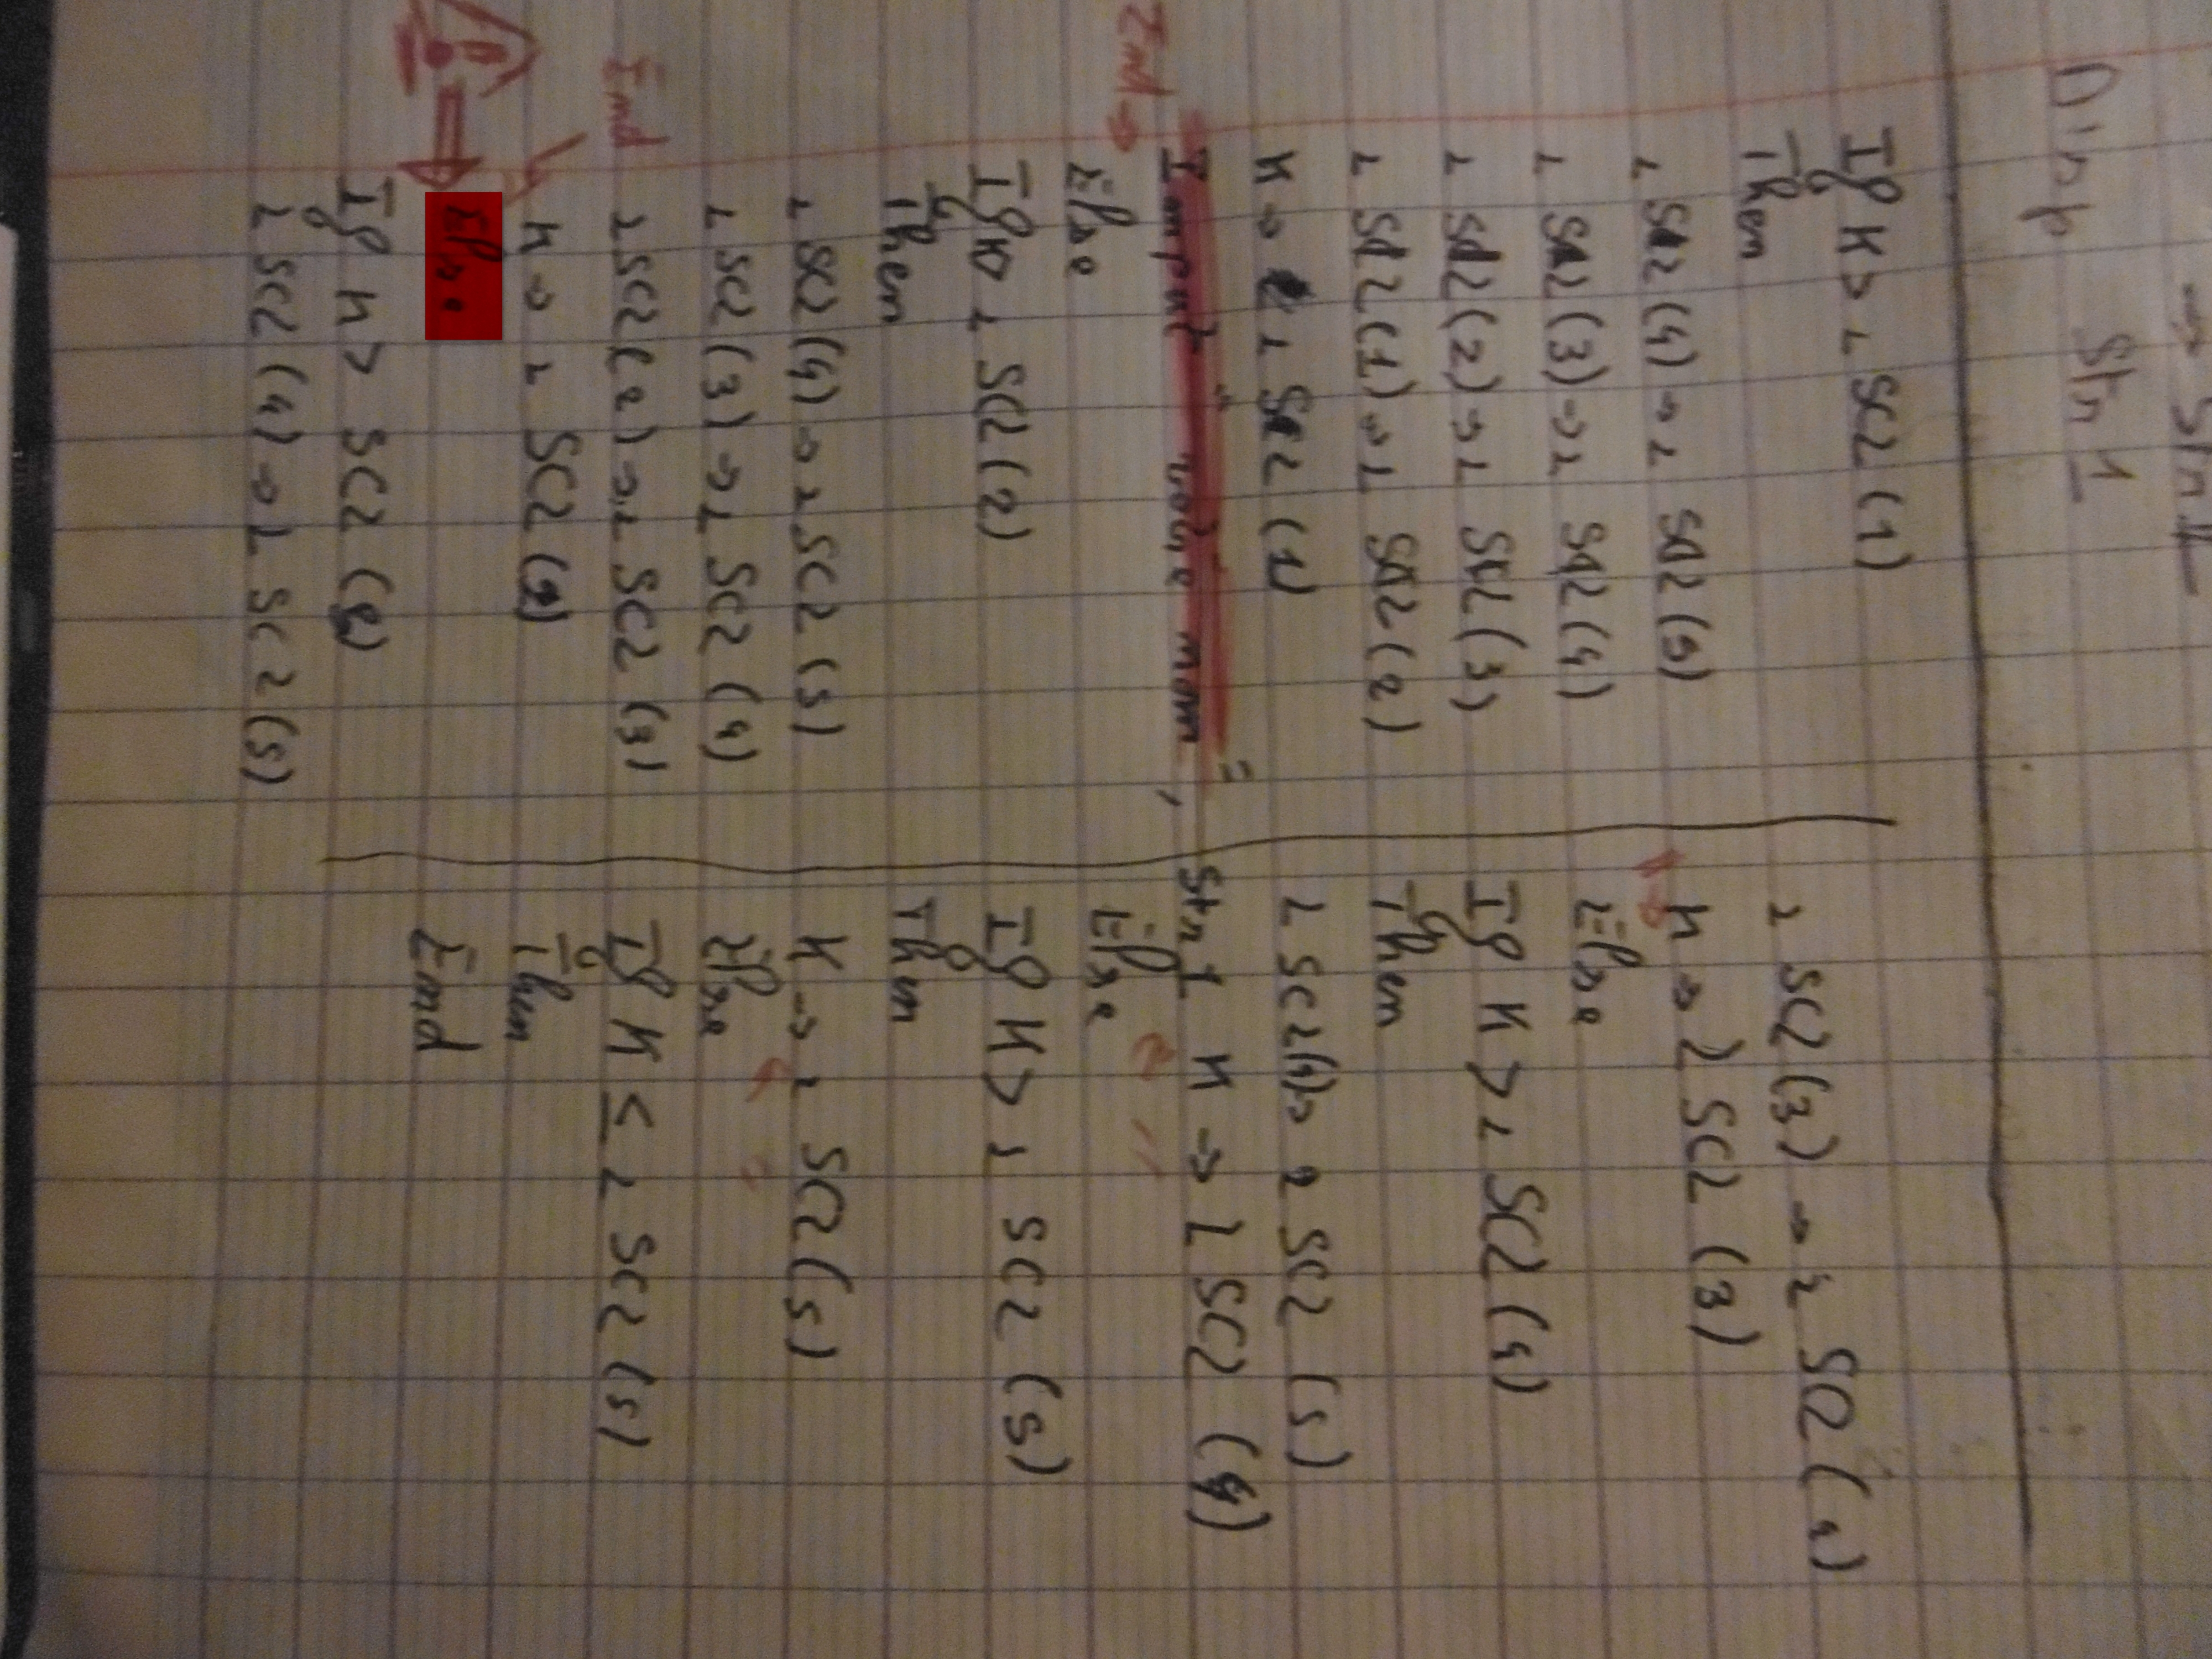 → Str1
Disp Str1
If K > L SC2 (1)
Then
L SC2 (4) → L SC2 (5)
L SC2 (3) → L SC2 (4)
L SC2 (2) → L SC2 (3)
L SC2 (1) → L SC2 (2)
K → L SC2 (1)
End →
Input "votre nom",
Else
If K > L SC2 (2)
Then
L SC2 (4) → L SC2 (5)
L SC2 (3) → L SC2 (4)
L SC2 (2) → L SC2 (3)
End
K → L SC2 (2)
Else
If K > SC2 (3)
L SC2 (4) → L SC2 (5)
L SC2 (3) → L SC2 (4)
K → L SC2 (3)
Else
If K > L SC2 (4)
Then
L SC2 (4) → L SC2 (5)
Str1 K → L SC2 (4)
Else
If K > L SC2 (5)
Then
K → L SC2 (5)
Else
If K ≤ L SC2 (5)
Then
End